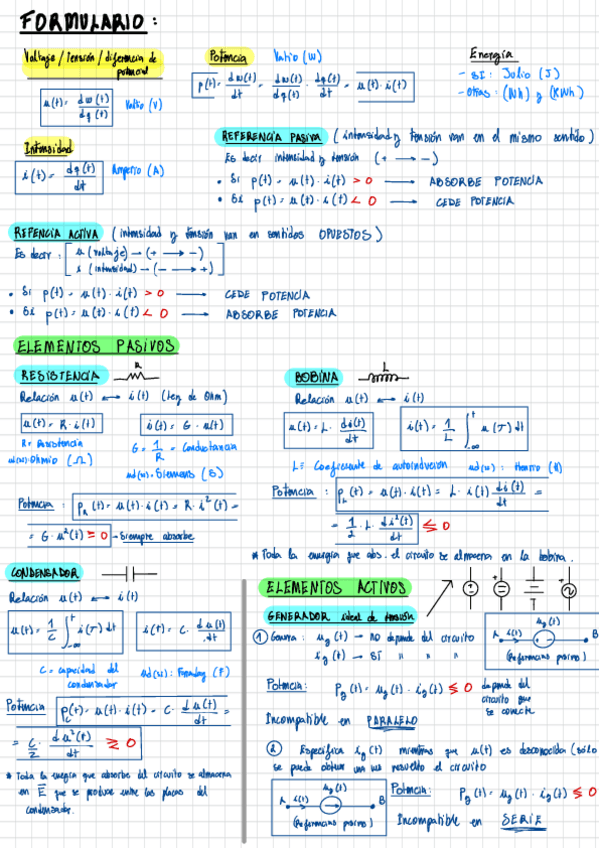 FORMULARIO:
Voltaje / Tensión / diferencia de potencial
u(t) = dw(t)/dq(t) Voltio (V)
Potencia Vatio (W)
p(t) = dw(t)/dt = dw(t)/dq(t) · dq(t)/dt = u(t)·i(t)
Energía
- SI: Julio (J)
- Otras: (Wh) y (KWh)
Intensidad
i(t) = dq(t)/dt Amperio (A)
REFERENCIA PASIVA (intensidad y tensión van en el mismo sentido)
Es decir intensidad y tensión (+ → -)
• Si p(t) = u(t)·i(t) > 0 → ABSORBE POTENCIA
• Si p(t) = u(t)·i(t) < 0 → CEDE POTENCIA
REFENCIA ACTIVA (intensidad y tensión van en sentidos OPUESTOS)
Es decir: [u (voltaje) → (+ → -)
i (intensidad) → (- → +)]
• Si p(t) = u(t)·i(t) > 0 → CEDE POTENCIA
• Si p(t) = u(t)·i(t) < 0 → ABSORBE POTENCIA
ELEMENTOS PASIVOS
RESISTENCIA R
Relación u(t) ↔ i(t) (Ley de Ohm)
u(t) = R·i(t) i(t) = G·u(t)
R = Resistencia G = 1/R = Conductancia
ud(u): Ohmio (Ω) ud(u): Siemens (S)
Potencia: P_R(t) = u(t)·i(t) = R·i²(t) =
= G·u²(t) ≥ 0 - Siempre absorbe
BOBINA L
Relación u(t) ↔ i(t)
u(t) = L· di(t)/dt i(t) = 1/L ∫_{-∞}^{t} u(τ) dt
L = Coeficiente de autoinducion ud(u): Henrio (H)
Potencia: P_L(t) = u(t)·i(t) = L·i(t) di(t)/dt =
= 1/2 · L · di²(t)/dt ≤≥ 0
* Toda la energia que abs. el circuito se almacena en la bobina.
CONDENSADOR
Relación u(t) ↔ i(t)
u(t) = 1/C ∫_{-∞}^{t} i(τ) dt i(t) = C· du(t)/dt
C = capacidad del condensador ud(u): Faraday (F)
Potencia: P_C(t) = u(t)·i(t) = C· du(t)/dt =
= C/2 · du²(t)/dt ≥≤ 0
* Toda la energia que absorbe del circuito se almacena
en E que se produce entre las placas del
condensador.
ELEMENTOS ACTIVOS
GENERADOR ideal de tensión
① Genera: u_g(t) → no depende del circuito
i_g(t) → SÍ " " "
u_g(t)
A i(t) B
(Referencias pasivas)
Potencia: P_g(t) = u_g(t)·i_g(t) ≤≥ 0 depende del
circuito que
se conecte
Incompatible en PARALELO
② Especifica i_g(t) mientras que u(t) es desconocida (sólo
se puede obtener una vez resuelto el circuito
u_g(t)
A i(t) B
(Referencias pasivas)
Potencia: P_g(t) = u_g(t)·i_g(t) ≤≥ 0
Incompatible en SERIE